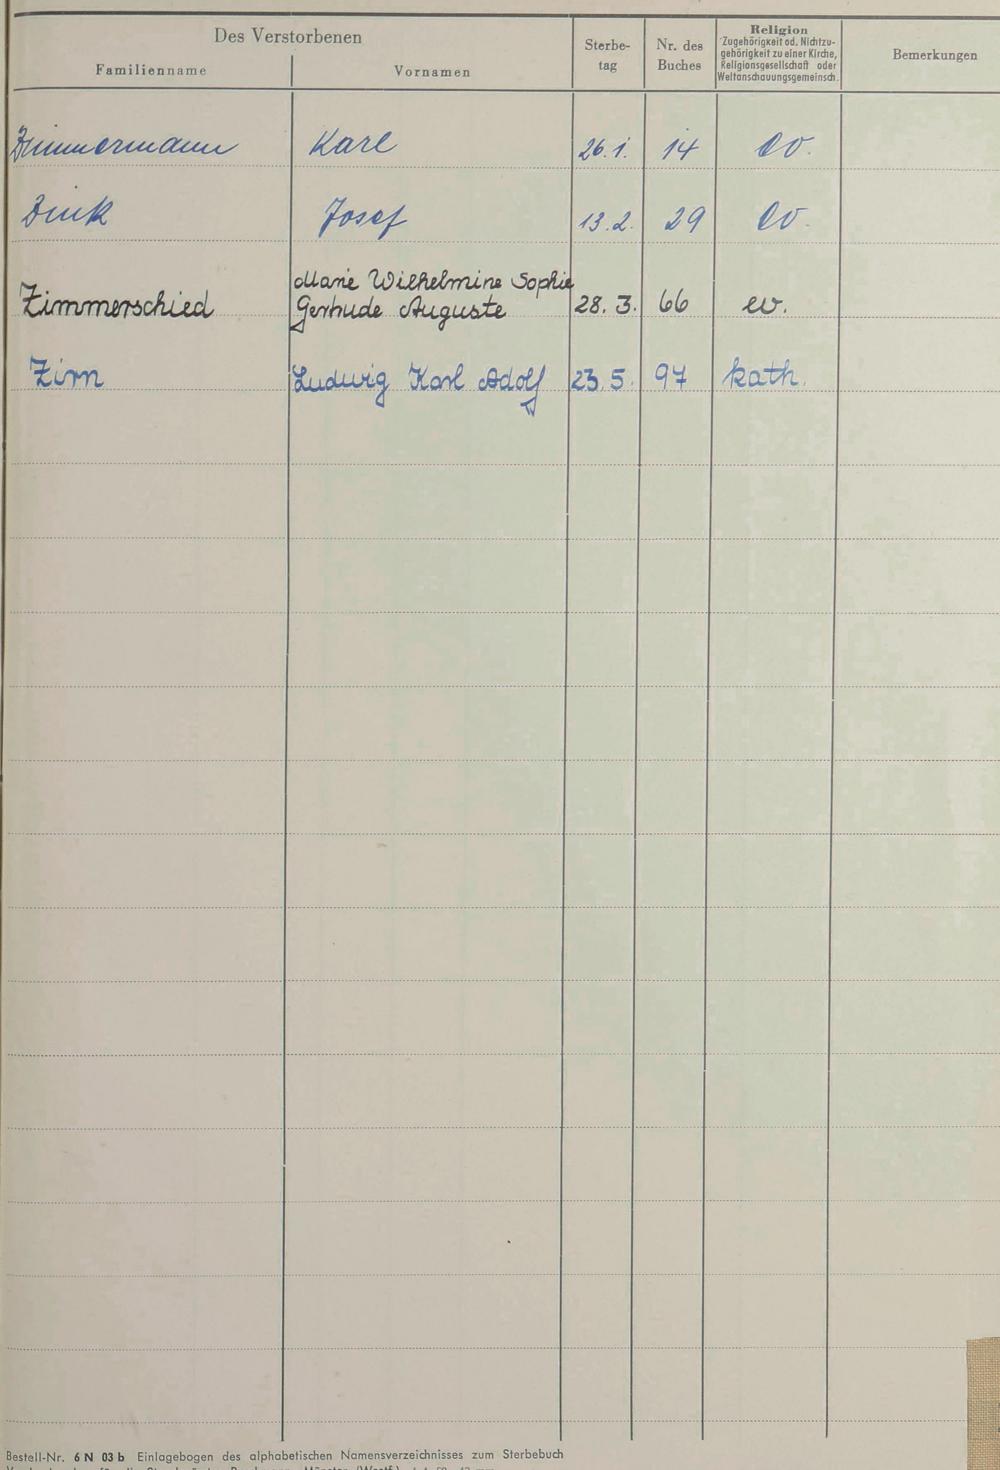 Des Verstorbenen
Familienname
Vornamen
Sterbe-
tag
Nr. des
Buches
Religion
Zugehörigkeit od. Nichtzu-
gehörigkeit zu einer Kirche,
Religionsgesellschaft oder
Weltanschauungsgemeinsch.
Bemerkungen
Zimmermann Karl 26.1. 14 ev.
Zink Josef 13.2. 29 ev.
Marie Wilhelmine Sophie
Zimmerschied Gertrude Auguste 28.3. 66 ev.
Zirn Ludwig Karl Adolf 23.5. 97 kath.
Bestell-Nr. 6 N 03 b Einlagebogen des alphabetischen Namensverzeichnisses zum Sterbebuch